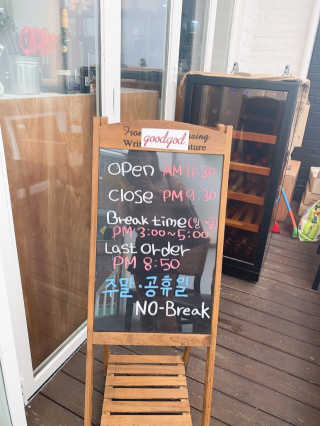 goodgod
Open AM 11:30
Close PM 9:30
Break time
PM 3:00~5:00
Last Order
PM 8:50
주말·공휴일
NO-Break